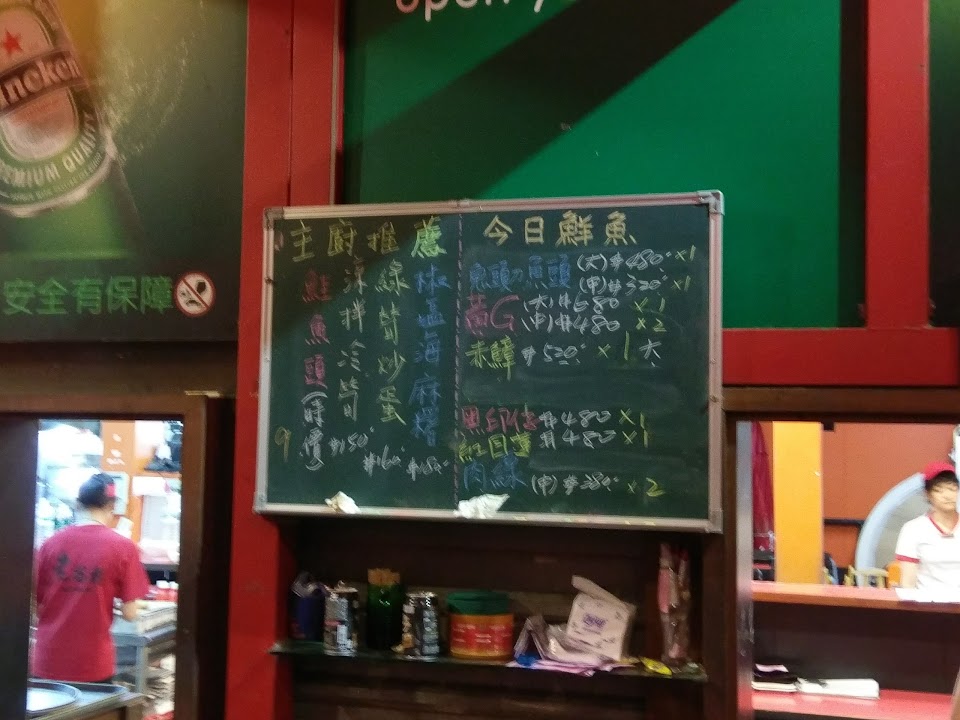 open
Heineken
PREMIUM QUALITY
安全有保障
主廚推薦
鮭魚頭(時價)
涼拌冷筍 $150
線筍炒蛋 $160
椒鹽海麻糬
今日鮮魚
魚頭 (大) $480 x1
(中) $320 x1
黃G (大) $680 x1
(中) $480 x2
赤鱆 $520 x1 大
$480 x1
$480 x1
肉線 (中) $280 x2